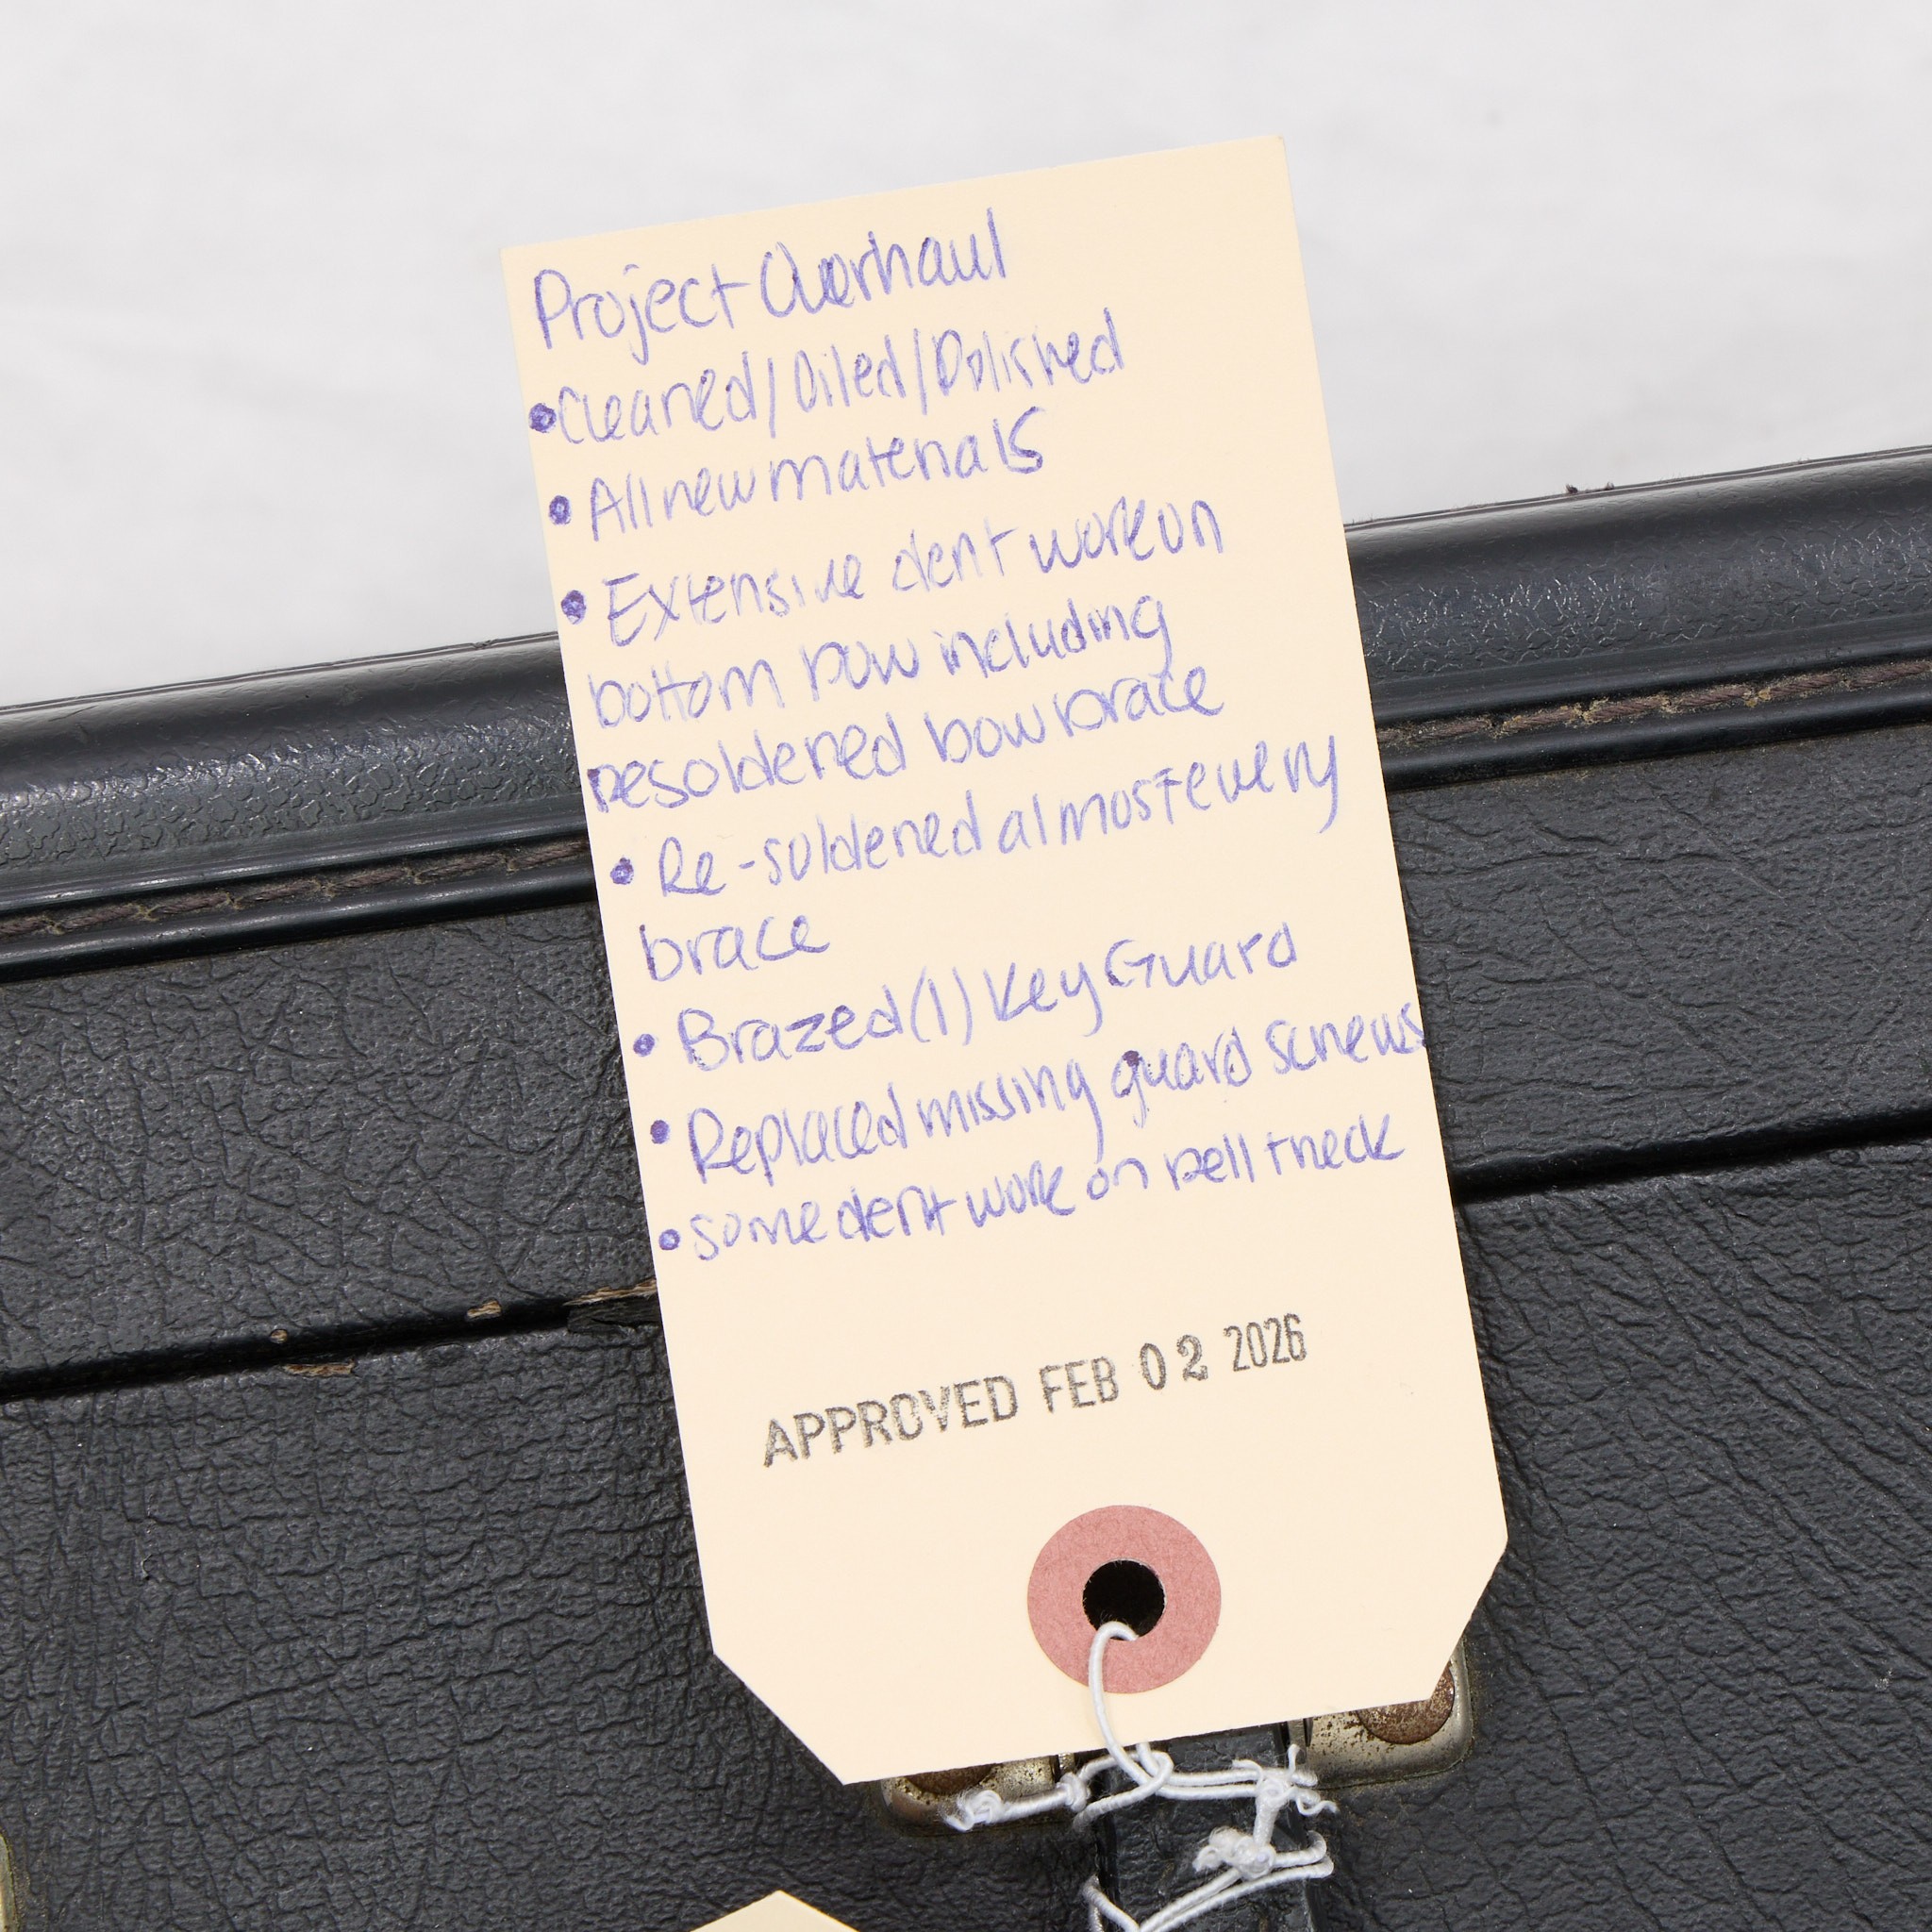 Project Overhaul
• Cleaned/Oiled/Polished
• All new materials
• Extensive dent work on
bottom bow including
resoldered bow brace
• Re-soldered almost every
brace
• Brazed (1) Key Guard
• Replaced missing guard screws
• some dent work on bell + neck
APPROVED FEB 02 2026